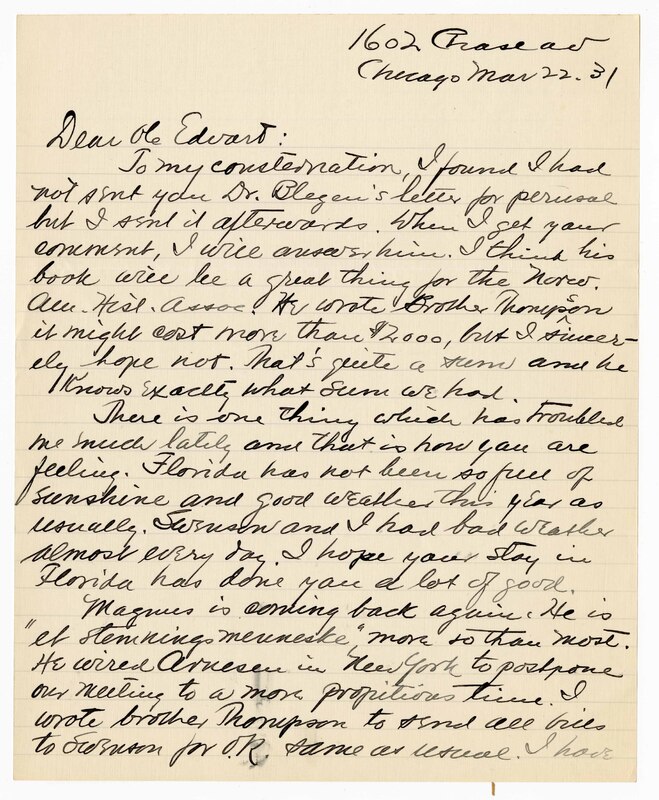 1602 Chase av
Chicago Mar 22. 31
Dear Ole Edvart:
To my consternation, I found I had
not sent you Dr. Blegen's letter for perusal
but I sent it afterwards. When I get your
comment, I will answer him. I think his
book will be a great thing for the Norw.
Am. Hist. Assoc. He wrote Brother Thompson
it might cost more than $2000, but I sincer-
ely hope not. That's quite a sum and he
knows exactly what sum we had.
There is one thing which has troubled
me much lately and that is how you are
feeling. Florida has not been so full of
sunshine and good weather this year as
usually. Swenson and I had bad weather
almost every day. I hope your stay in
Florida has done you a lot of good.
Magnus is coming back again. He is
"et stemningsmenneske" more so than most.
He wired Arnesen in New York to postpone
our meeting to a more propitious time. I
wrote brother Thompson to send all bills
to Swenson for O.K. same as usual. I have